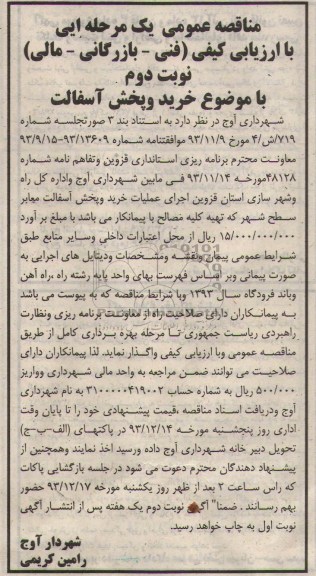 مناقصه عمومی یک مرحله ایی
با ارزیابی کیفی (فنی - بازرگانی - مالی)
نوبت دوم
با موضوع خرید وپخش آسفالت
شهرداری آوج در نظر دارد به استناد بند ۳ صورتجلسه شماره
۷۱۹/ش/۴ مورخ ۹۳/۱۱/۹ موافقتنامه شماره ۹۳/۱۳۶۰۹-۹۳/۹/۱۵
معاونت محترم برنامه ریزی استانداری قزوین وتفاهم نامه شماره
۴۸۱۲۸مورخه ۹۳/۱۱/۱۴ فی مابین شهرداری آوج واداره کل راه
وشهر سازی استان قزوین اجرای عملیات خرید وپخش آسفالت معابر
سطح شهر که تهیه کلیه مصالح با پیمانکار می باشد با مبلغ بر آورد
۱۵/۰۰۰/۰۰۰/۰۰۰ ریال از محل اعتبارات داخلی وسایر منابع طبق
شرایط عمومی پیمان ونقشه ومشخصات ودیتایل های اجرایی به
صورت پیمانی وبر اساس فهرست بهای واحد پایه رشته راه ،راه آهن
وباند فرودگاه سال ۱۳۹۳ وبا شرایط مناقصه که به پیوست می باشد
به پیمانکاران دارای صلاحیت راه از معاونت برنامه ریزی ونظارت
راهبردی ریاست جمهوری تا مرحله بهره برداری کامل از طریق
مناقصه عمومی وبا ارزیابی کیفی واگذار نماید. لذا پیمانکاران دارای
صلاحیت می توانند ضمن مراجعه به واحد مالی شهرداری وواریز
۵۰۰/۰۰۰ ریال به شماره حساب ۳۱۰۰۰۰۰۴۱۹۰۰۲ به نام شهرداری
آوج ودریافت اسناد مناقصه ،قیمت پیشنهادی خود را تا پایان وقت
اداری روز پنجشنبه مورخه ۹۳/۱۲/۱۴ در پاکتهای (الف-ب-ج)
تحویل دبیر خانه شهرداری آوج داده ورسید اخذ نمایند وهمچنین از
پیشنهاد دهندگان محترم دعوت می شود در جلسه بازگشایی پاکات
که راس ساعت ۲ بعد از ظهر روز یکشنبه مورخه ۹۳/۱۲/۱۷ حضور
بهم رسانند . ضمنا" آگهی نوبت دوم یک هفته پس از انتشار آگهی
نوبت اول به چاپ خواهد رسید.
شهردار آوج
رامین کریمی